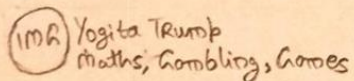 IMG Yogita TRump
Maths, Gambling, Games